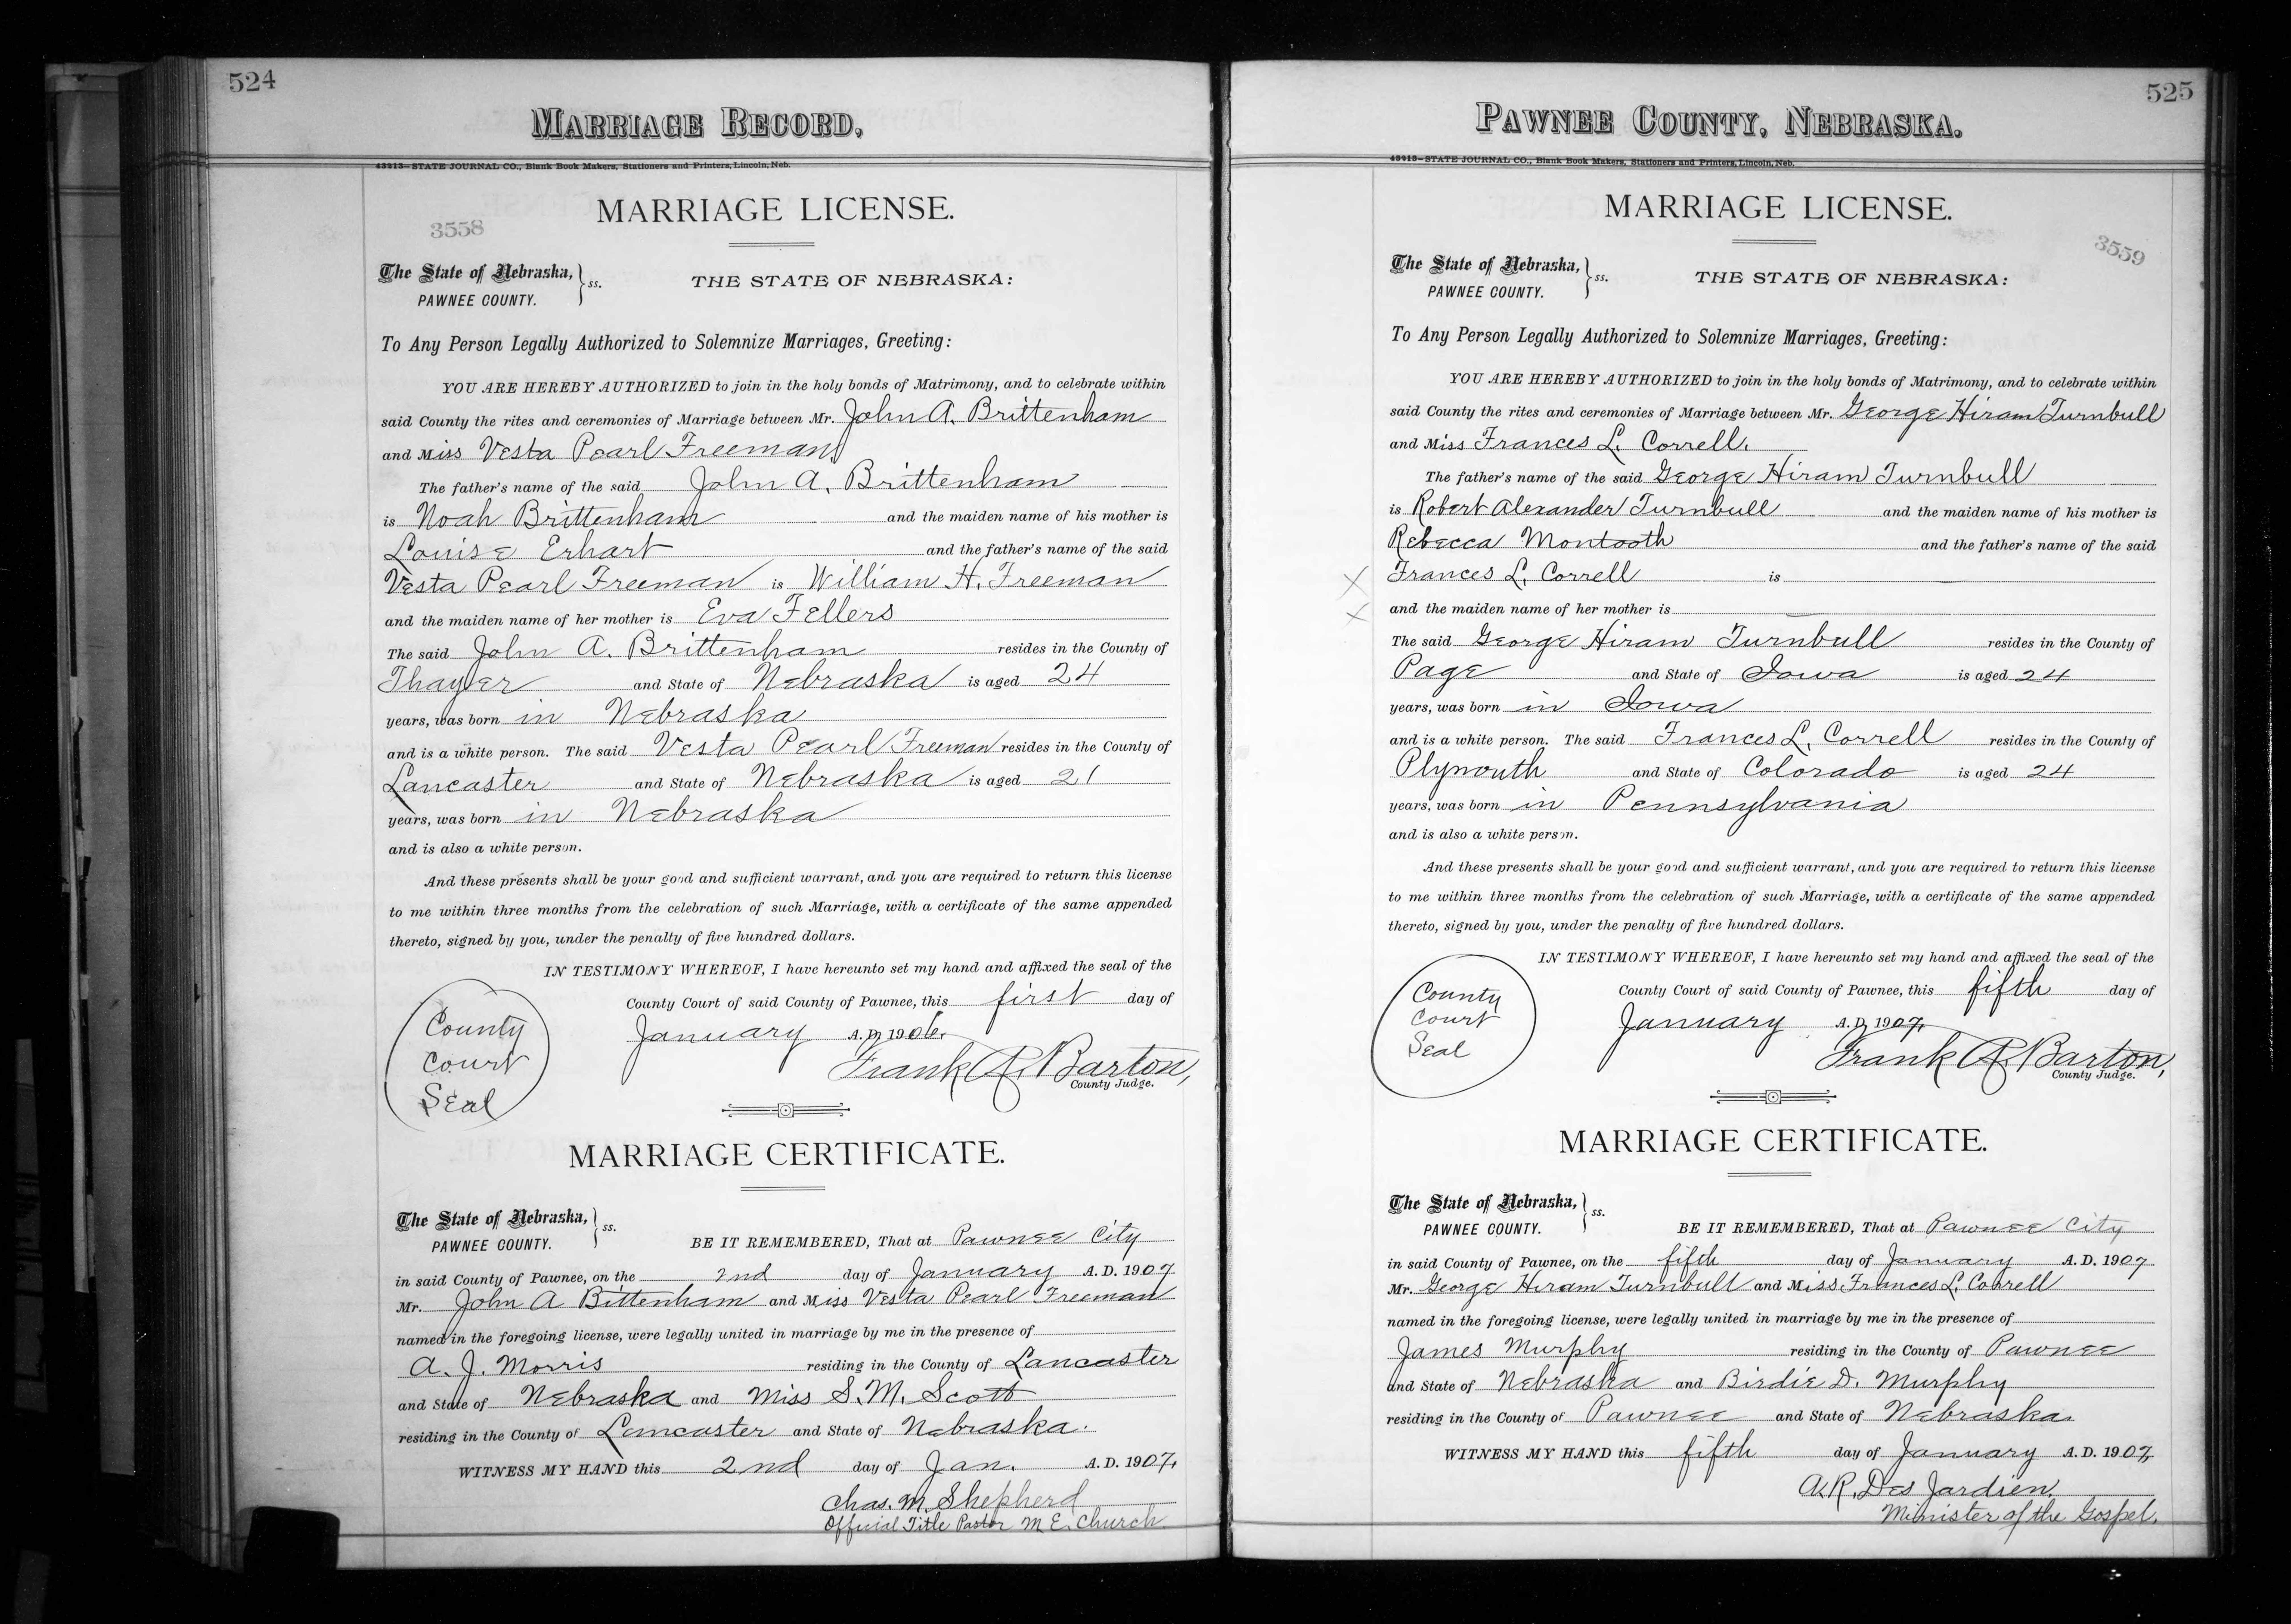 524
MARRIAGE RECORD,
43213—STATE JOURNAL CO., Blank Book Makers, Stationers and Printers, Lincoln, Neb.
3558
MARRIAGE LICENSE.
The State of Nebraska, } ss.
PAWNEE COUNTY.
THE STATE OF NEBRASKA:
To Any Person Legally Authorized to Solemnize Marriages, Greeting:
YOU ARE HEREBY AUTHORIZED to join in the holy bonds of Matrimony, and to celebrate within
said County the rites and ceremonies of Marriage between Mr. John A. Brittenham
and Miss Vesta Pearl Freeman
The father's name of the said John A. Brittenham
is Noah Brittenham and the maiden name of his mother is
Louise Erhart and the father's name of the said
Vesta Pearl Freeman is William H. Freeman
and the maiden name of her mother is Eva Fellers
The said John A. Brittenham resides in the County of
Thayer and State of Nebraska is aged 24
years, was born in Nebraska
and is a white person. The said Vesta Pearl Freeman resides in the County of
Lancaster and State of Nebraska is aged 21
years, was born in Nebraska
and is also a white person.
And these presents shall be your good and sufficient warrant, and you are required to return this license
to me within three months from the celebration of such Marriage, with a certificate of the same appended
thereto, signed by you, under the penalty of five hundred dollars.
IN TESTIMONY WHEREOF, I have hereunto set my hand and affixed the seal of the
County Court of said County of Pawnee, this first day of
January A. D. 1906.
County
Court
Seal
Frank A. Barton,
County Judge.
MARRIAGE CERTIFICATE.
The State of Nebraska, } ss.
PAWNEE COUNTY.
BE IT REMEMBERED, That at Pawnee City
in said County of Pawnee, on the 2nd day of January A. D. 1907
Mr. John A Bittenham and Miss Vesta Pearl Freeman
named in the foregoing license, were legally united in marriage by me in the presence of
A. J. Morris residing in the County of Lancaster
and State of Nebraska and Miss S. M. Scott
residing in the County of Lancaster and State of Nebraska.
WITNESS MY HAND this 2nd day of Jan. A. D. 1907.
Chas. M. Shepherd
Official Title Pastor M E. Church
525
PAWNEE COUNTY, NEBRASKA.
43213—STATE JOURNAL CO., Blank Book Makers, Stationers and Printers, Lincoln, Neb.
MARRIAGE LICENSE.
3559
The State of Nebraska, } ss.
PAWNEE COUNTY.
THE STATE OF NEBRASKA:
To Any Person Legally Authorized to Solemnize Marriages, Greeting:
YOU ARE HEREBY AUTHORIZED to join in the holy bonds of Matrimony, and to celebrate within
said County the rites and ceremonies of Marriage between Mr. George Hiram Turnbull
and Miss Frances L. Correll.
The father's name of the said George Hiram Turnbull
is Robert Alexander Turnbull and the maiden name of his mother is
Rebecca Montooth and the father's name of the said
X Frances L. Correll is
X and the maiden name of her mother is
The said George Hiram Turnbull resides in the County of
Page and State of Iowa is aged 24
years, was born in Iowa
and is a white person. The said Frances L. Correll resides in the County of
Plymouth and State of Colorado is aged 24
years, was born in Pennsylvania
and is also a white person.
And these presents shall be your good and sufficient warrant, and you are required to return this license
to me within three months from the celebration of such Marriage, with a certificate of the same appended
thereto, signed by you, under the penalty of five hundred dollars.
IN TESTIMONY WHEREOF, I have hereunto set my hand and affixed the seal of the
County Court of said County of Pawnee, this fifth day of
January A. D. 1907,
County
Court
Seal
Frank A. Barton,
County Judge.
MARRIAGE CERTIFICATE.
The State of Nebraska, } ss.
PAWNEE COUNTY.
BE IT REMEMBERED, That at Pawnee City
in said County of Pawnee, on the fifth day of January A. D. 1907
Mr. George Hiram Turnbull and Miss Frances L. Correll
named in the foregoing license, were legally united in marriage by me in the presence of
James Murphy residing in the County of Pawnee
and State of Nebraska and Birdie D. Murphy
residing in the County of Pawnee and State of Nebraska.
WITNESS MY HAND this fifth day of January A. D. 1907,
A. R. Des Jardien.
Minister of the Gospel.